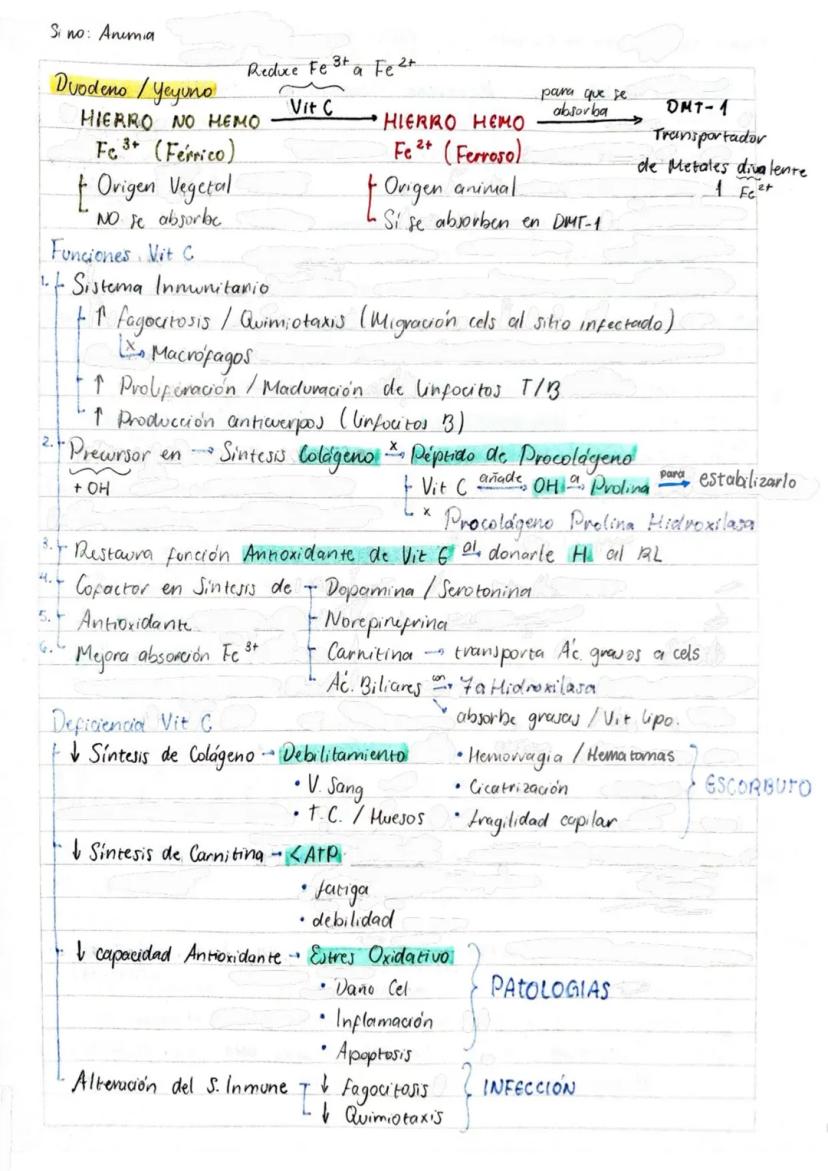 Si no: Anemia
Reduce Fe3+ a Fe2+
Duodeno / Yeyuno
HIERRO NO HEMO Vit C → HIERRO HEMO para que se absorba → DMT-1
Fe3+ (Férrico) Fe2+ (Ferroso) Transportador
de Metales divalente
Origen Vegetal Origen animal ↑ Fe2+
NO se absorbe Sí se absorben en DMT-1
Funciones Vit C
1. Sistema Inmunitario
↑ fagocitosis / Quimiotaxis (Migración cels al sitio infectado)
x → Macrófagos
↑ Proliferación / Maduración de linfocitos T/B
↑ Producción anticuerpos (linfocitos B)
2. Precursor en → Síntesis Colágeno x → Péptido de Procolágeno
+ OH Vit C añade → OH a → Prolina para → estabilizarlo
x Procolágeno Prolina Hidroxilasa
3. Restaura función Antioxidante de Vit E al → donarle H al RL
4. Cofactor en Síntesis de Dopamina / Serotonina
5. Antioxidante Norepinefrina
6. Mejora absorción Fe3+ Carnitina → transporta Ác. grasos a cels
Ác. Biliares con → 7α Hidroxilasa
absorbe grasas / Vit lipo.
Deficiencia Vit C
↓ Síntesis de Colágeno → Debilitamiento • Hemorragia / Hematomas
• V. Sang • Cicatrización ESCORBUTO
• T.C. / Huesos • fragilidad capilar
↓ Síntesis de Carnitina → < ATP
• fatiga
• debilidad
↓ capacidad Antioxidante → Estres Oxidativo
• Daño Cel PATOLOGIAS
• Inflamación
• Apoptosis
Alteración del S. Inmune ↓ fagocitosis INFECCIÓN
↓ Quimiotaxis